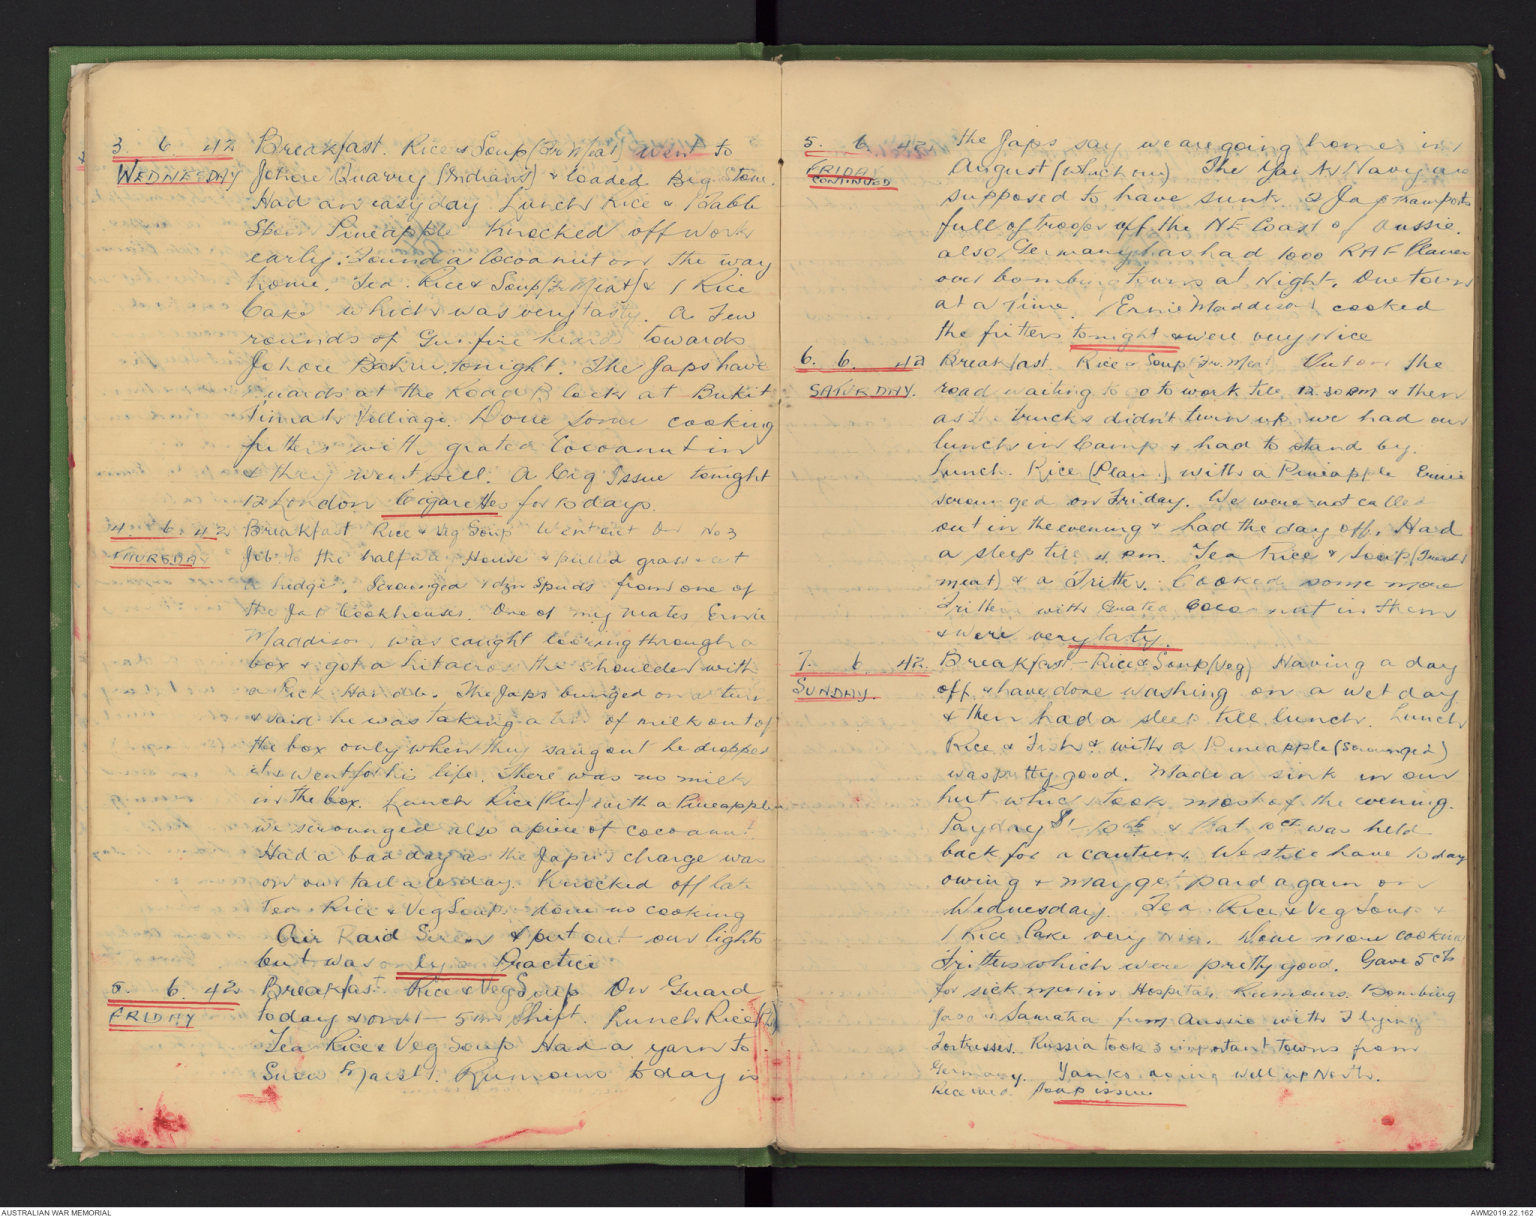 3. 6. 42 Breakfast. Rice & Soup (Fr Meat) went to
WEDNESDAY Johore Quarry (Indians) & loaded Big Stone.
Had an easy day Lunch Rice &
Stew Pineapple Knocked off work
early. Found a Cocoanut on the way
home. Tea. Rice & Soup (Fr Meat) & 1 Rice
Cake which was very tasty. A Few
rounds of Gunfire heard towards
Johore Bahru tonight. The Japs have
guards at the Road Blocks at Bukit
Timah Village. Done some cooking
fritters with grated Cocoanut in
& they went well. A Cig Issue tonight
12 London Cigarettes for 10 days.
4. 6. 42 Breakfast Rice & Veg Soup Went out On No 3
THURSDAY Job to the half way House & pulled grass & cut
a hedge. Scrounged &  spuds from one of
the Jap Cookhouses. One of my mates Ernie
Maddison was caught looking through a
box & got a hit across the shoulder with
a Pick Handle. The Japs bunged on a turn
& said he was taking a tin of milk out of
the box only when they sang out he dropped
it & went for his life. There was no milk
in the box. Lunch Rice (Pln) with a Pineapple
we scrounged also a piece of cocoanut.
Had a bad day as the Japs i/c charge was
on our tail all day. Knocked off late
Tea Rice & Veg Soup. done no cooking
Air Raid Siren & put out our lights
but was only a Practice
5. 6. 42 Breakfast Rice & Veg Soup On Guard
FRIDAY today & on 1st - 5th Shift. Lunch Rice (Pl)
Tea Rice & Veg Soup Had a yarn to
Snow. Rumours today is
5. 6. 42. the Japs say we are going home in
FRIDAY August (which one) The Navy are
CONTINUED supposed to have sunk 2 Jap transports
full of troops off the NE Coast of Aussie.
also Germany has had 1000 RAF Planes
over bombing towns at Night. One town
at a time. Ernie Maddison cooked
the fritters tonight & were very nice
6. 6. 42 Breakfast. Rice & Soup Fr. Meat Out on the
SATURDAY. road waiting to go to work till 12.30 PM & then
as the trucks didn't turn up we had our
lunch in Camp & had to stand by.
Lunch. Rice (Plain) with a Pineapple Ernie
scrounged on Friday. We were not called
out in the evening & had the day off. Had
a sleep till 4 pm. Tea Rice & Soup (Fresh
meat) & a Fritter. Cooked some more
Fritters with Grated Cocoanut in them
& were very tasty.
7. 6. 42. Breakfast - Rice & Soup (Veg) Having a day
SUNDAY. off & have done washing on a wet day
& then had a sleep till lunch. Lunch
Rice & Fish & with a Pineapple (Scrounged)
was pretty good. Made a sink in our
hut which took most of the evening.
Payday $1 - 10 cts & that 10 ct was held
back for a caution. We still have 10 day
owing & may get paid again on
Wednesday. Tea Rice & Veg Soup &
1 Rice Cake very nice. Done more cooking
Fritters which were pretty good. Gave 5 cts
for sick men in Hospital. Rumours. Bombing
Java & Samatra from Aussie with Flying
Fortresses. Russia took 3 important towns from
Germany. Yanks doing well up North.
Received Soap issue
AUSTRALIAN WAR MEMORIAL
AWM2019.22.162